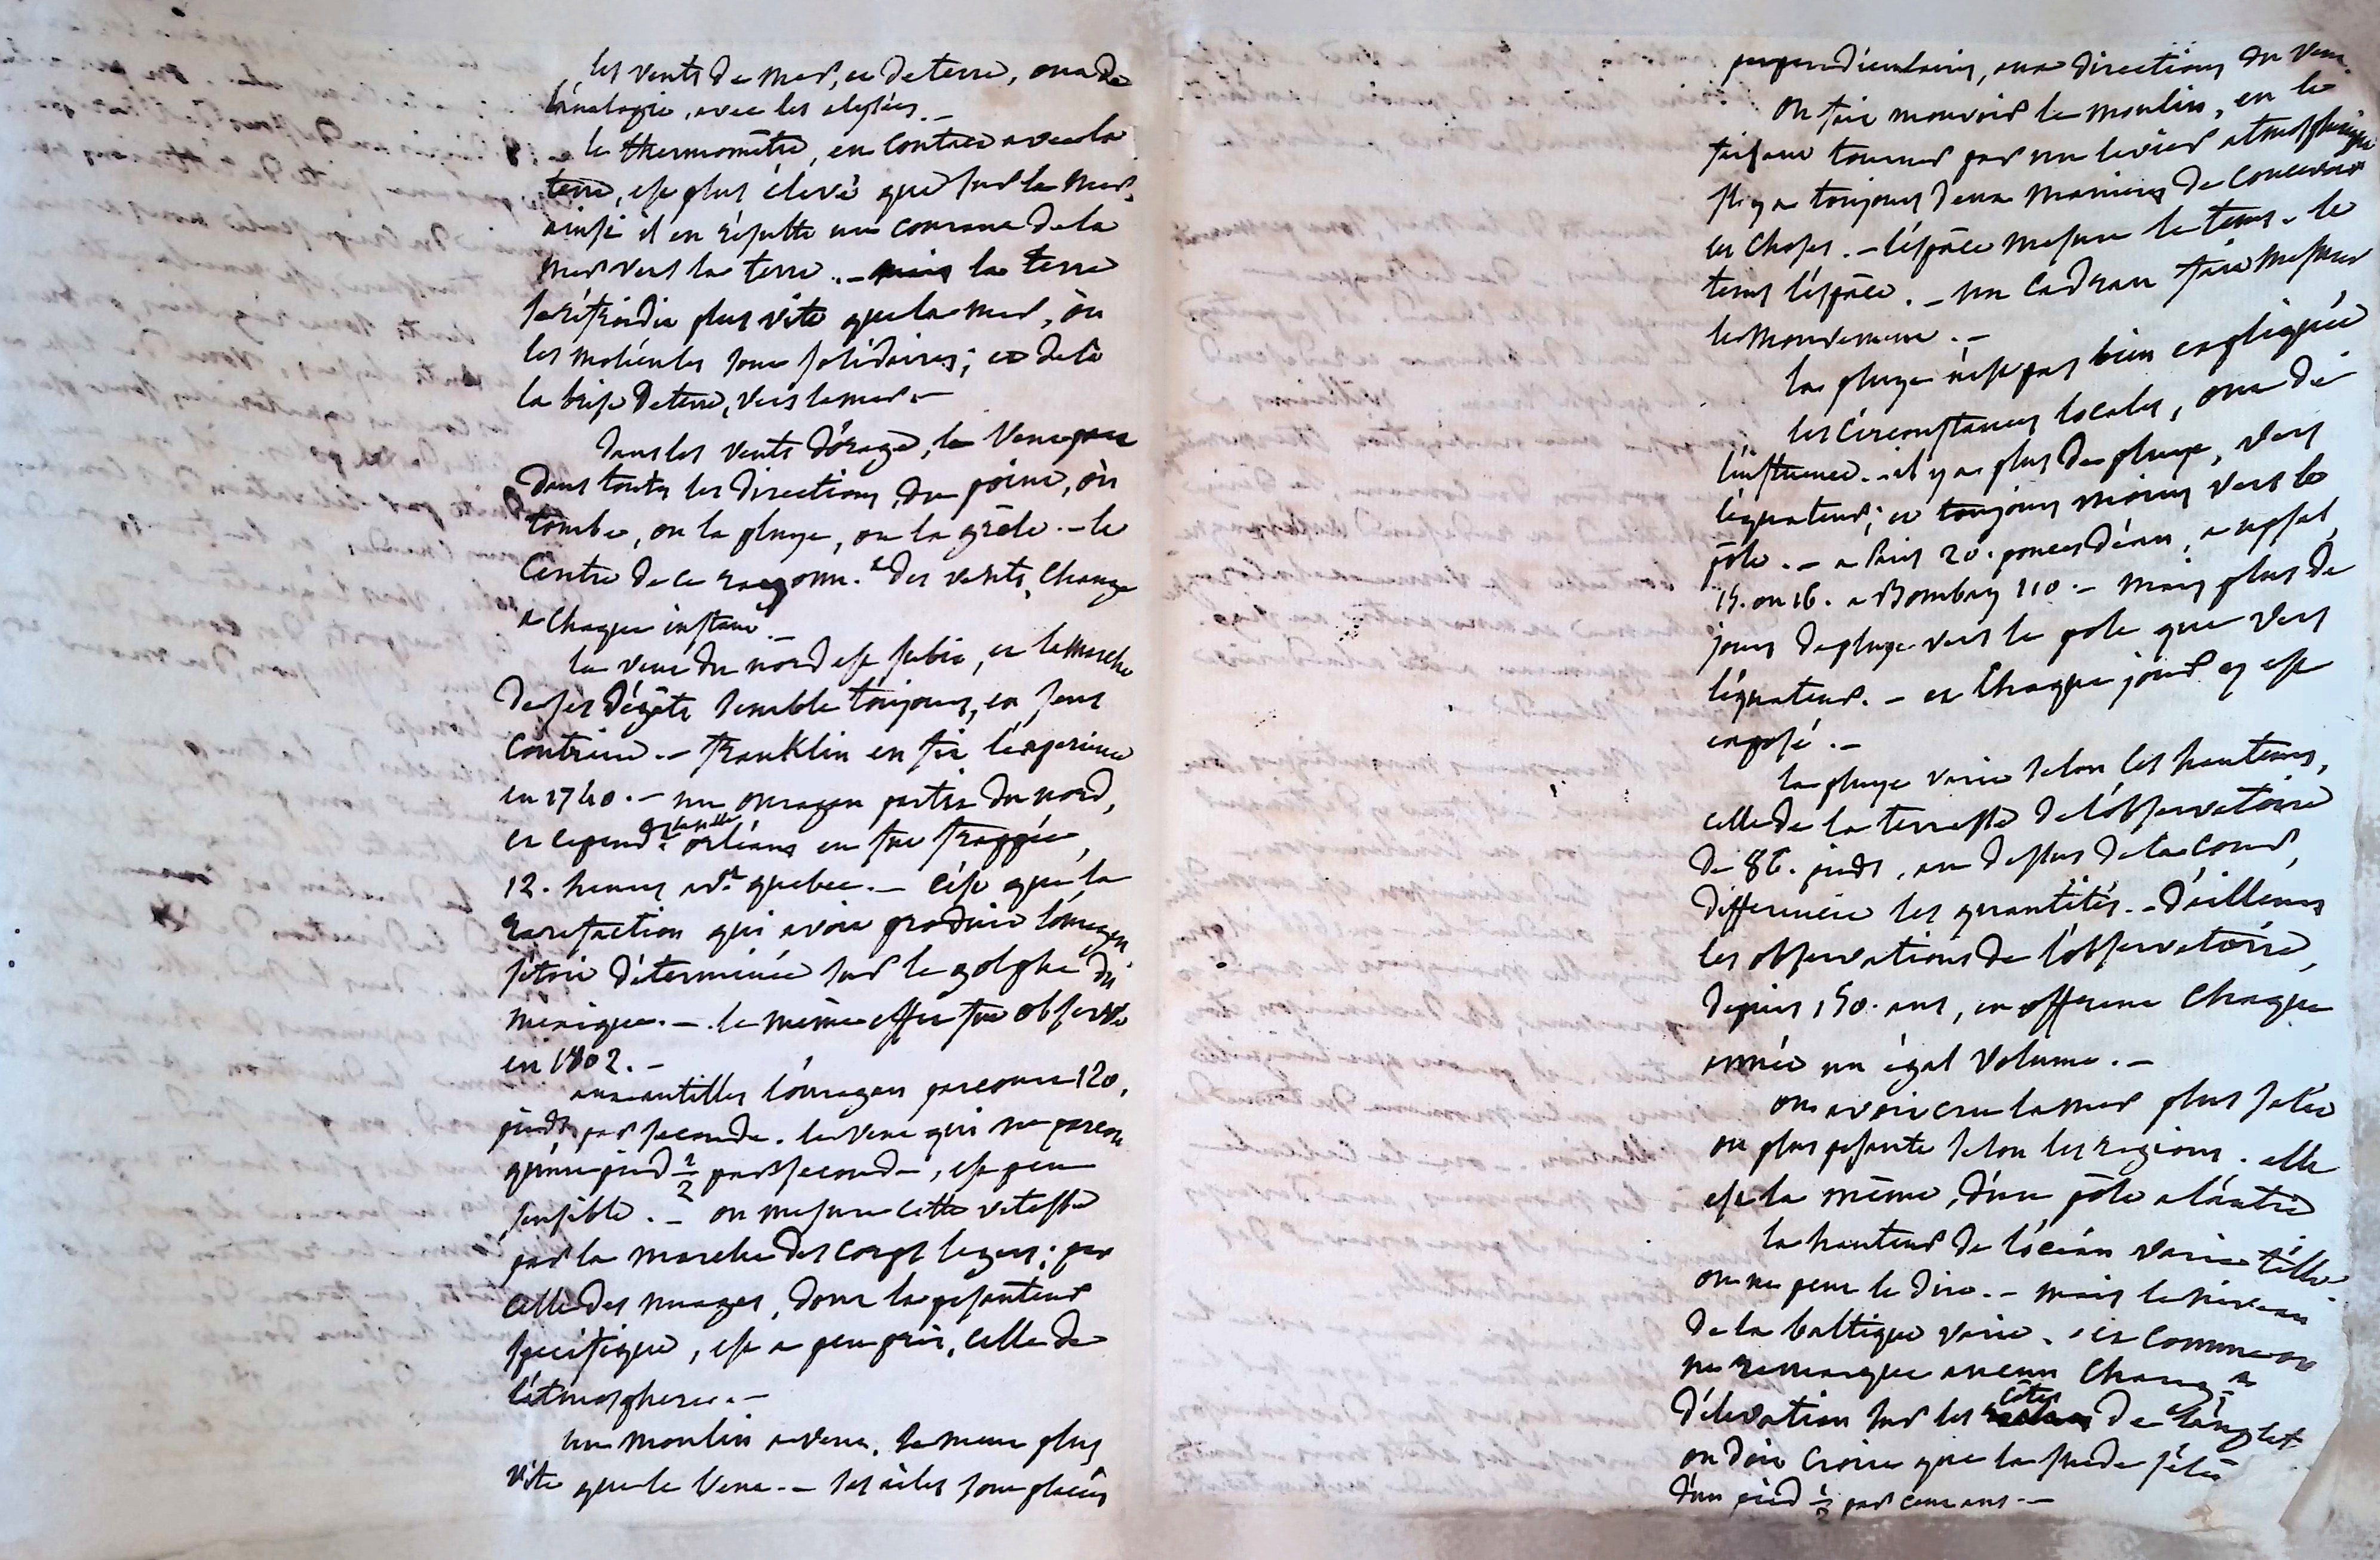 les vents de mer, et de terre, ont de
l'analogie, avec les alysées. _
le thermomêtre, en contact avec la
terre, est plus élevé que sur la mer.
ainsi il en résulte un courant de la
mer vers la terre. _ mais la terre
se réfroidit plus vîte que la mer, où
les molécules sont solidaires; et delà
la brise de terre, vers la mer. _
dans les vents d'orage, le vent part
dans toutes les directions, du point, où
tombe, ou la pluye, ou la grêle. _ le
centre de ce rayonn.t des vents, change
a chaque instant. _
le vent du nord est subit, et la marche
de ses dégâts semble toujours, en sens
contraire. _ franklin en fit l'experience
en 1740. _ un ouragan partit du nord,
et cepend.t la nlle orléans en fut frappée,
12. heures av.t quebec. _ c'est que la
rarefaction qui avoit produit l'ouragan
s'etoit déterminée sur le golphe du
méxique. _ le même effet fut observé
en 1802. _
aux antilles l'ouragan parcourt 120.
pieds par seconde. le vent qui ne parcourt
qu'un pied 1/2 par seconde, est peu
sensible. _ on mesure cette vitesse
par la marche des corps legers; par
celle des nuages, dont la pesanteur
specifique, est a peu près, celle de
l'atmosphere. _
un moulin a vent, se meut plus
vîte que le vent. _ ses aîles sont placées
perpendiculaires, aux directions du vent.
on fait mouvoir le moulin, en le
faisant tourner par un levier atmosphérique
il y a toujours deux manieres de concevoir
les choses. _ l'éspace mesure le tems. le
tems l'éspace. _ un cadran fait mesurer
le mouvement. _
la pluye n'est pas bien expliquée,
les circonstances locales, ont de
l'influence. _ il y a plus de pluye, vers
l'équateur; et toujours moins vers le
pôle. _ a Paris 20. pouces d'eau, a upsal,
15. ou 16. a Bombay 110 _ mais plus de
jours de pluye vers le pole que vers
l'équateur. _ et chaque jour y est
exposé. _
la pluye varie selon les hauteurs,
celle de la terrasse de l'observatoire
de 86. pieds, au dessus de la cour,
différencie les quantités. _ d'ailleurs
les observations de l'observatoire,
depuis 150. ans, en offrent chaque
année un égal volume. _
on avoit cru la mer plus salée
ou plus pesante selon les regions. elle
est la même, d'un pôle a l'autre
la hauteur de l'océan varie t'elle.
on ne peut le dire. _ mais le niveau
de la baltique varie. et comme on
ne remarque aucun chang.t
d'élevation sur les côtes de l'anglet.
on doit croire que la suede s'élève
d'un pied 1/2 par cent ans. _